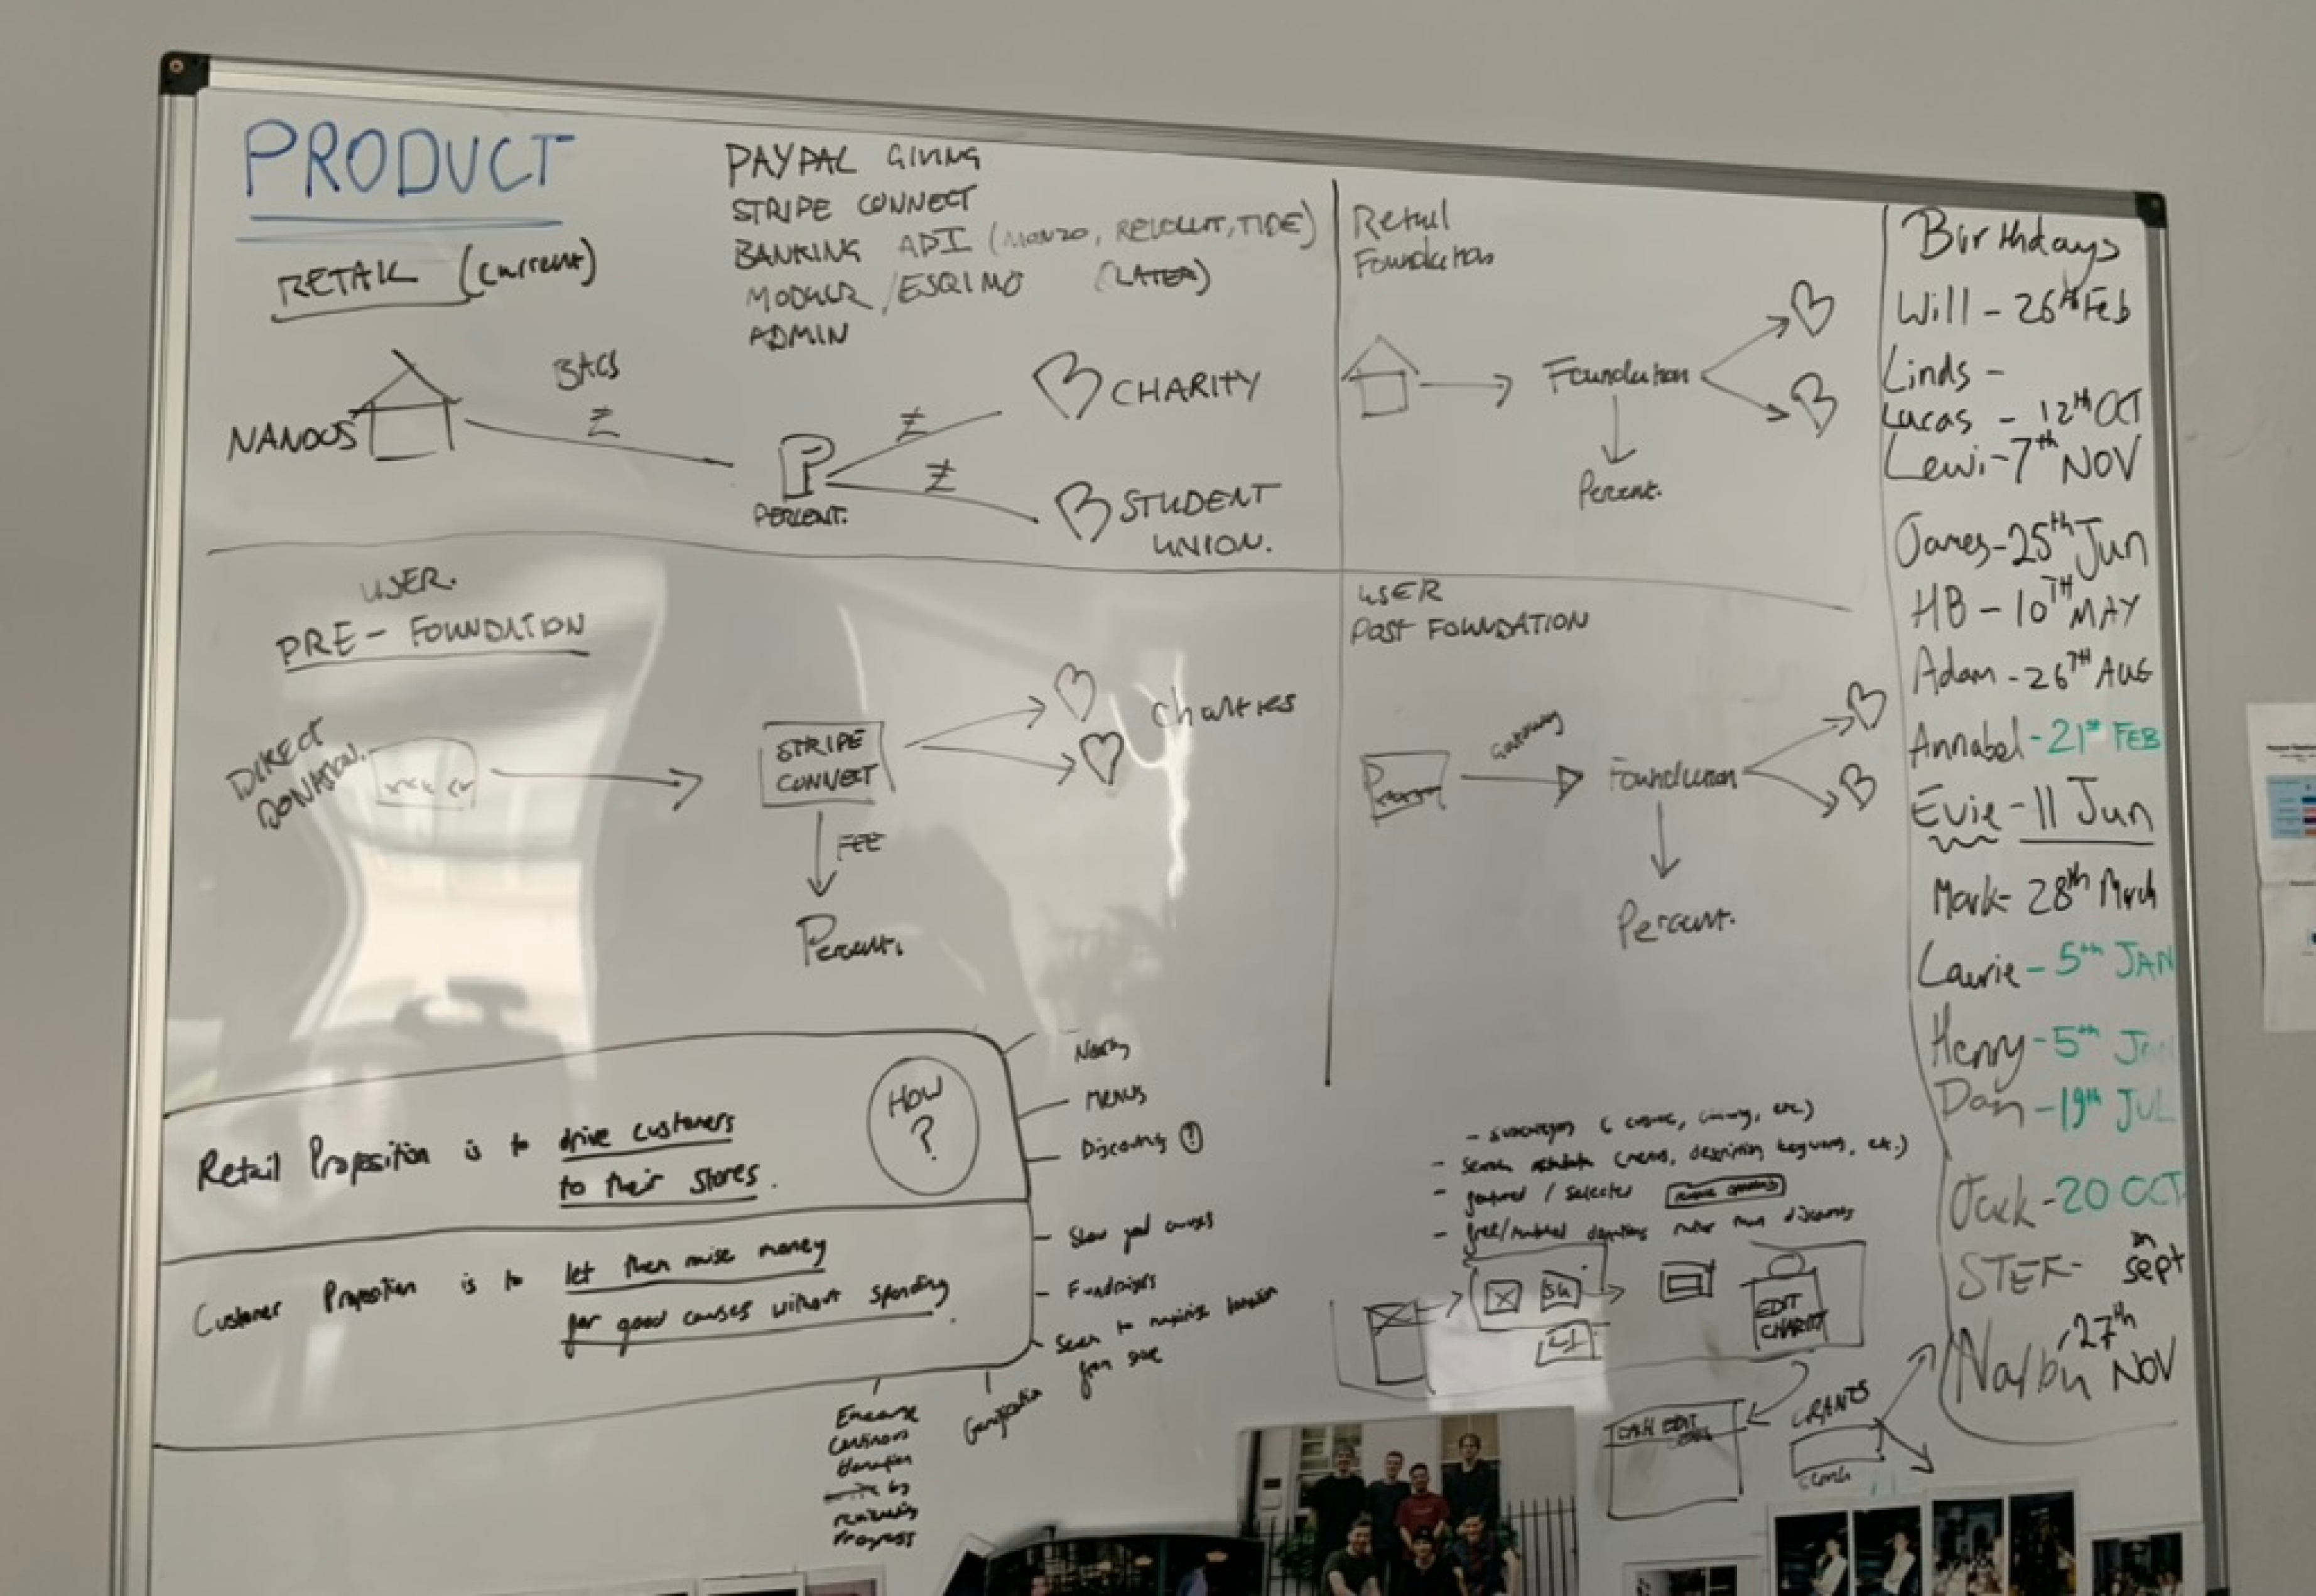 PRODUCT
RETAIL (current)
PAYPAL GIVING
STRIPE CONNECT
BANKING API (MONZO, REVOLUT, TIDE)
MODULR / ESQIMO (LATER)
ADMIN
NANDOS
BACS
£
PERCENT.
£
£
CHARITY
STUDENT
UNION.
Retail
Foundation
Foundation
Percent.
USER.
PRE - FOUNDATION
DIRECT
DONATION.
STRIPE
CONNECT
Charities
FEE
Percent.
USER
POST FOUNDATION
Gateway
Foundation
Percent.
Retail Proposition is to drive customers
to their stores.
HOW
?
MENUS
Discounts !
Customer Proposition is to let them raise money
for good causes without spending.
Show good causes
Fundraisers
Seen to maximise donation
from
Gamification
Encourage
continuous
donation
by
reviewing
Progress
- search metadata (menus, description keywords, etc.)
- featured / selected
- free/matched donations rather than discounts
EDIT
CHARITY
GRANTS
Birthdays
Will - 26th Feb
Linds -
Lucas - 12th OCT
Lewi - 7th NOV
James - 25th Jun
HB - 10TH MAY
Adam - 26TH AUG
Annabel - 21st FEB
Evie - 11 Jun
Mark - 28th March
Laurie - 5th JAN
Henry - 5th Jan
Dan - 19th JUL
Jack - 20 OCT
STEF - sept
27th
NOV